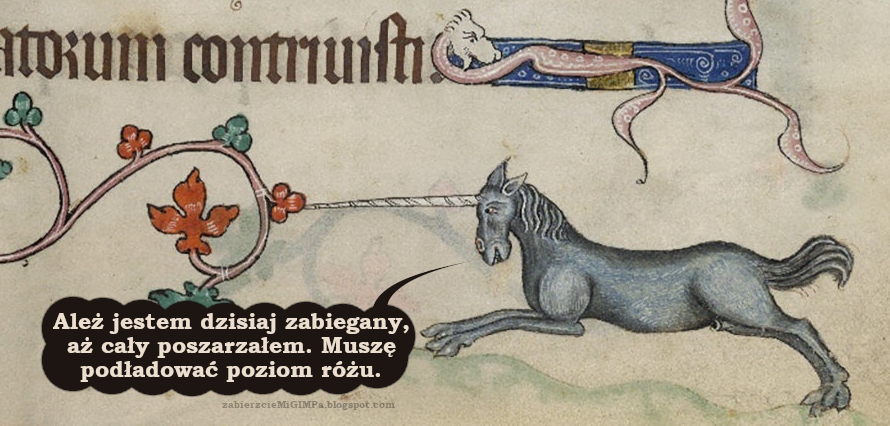 atorum contriuisti.
Ależ jestem dzisiaj zabiegany,
aż cały poszarzałem. Muszę
podładować poziom różu.
zabierzcieMiGIMPa.blogspot.com